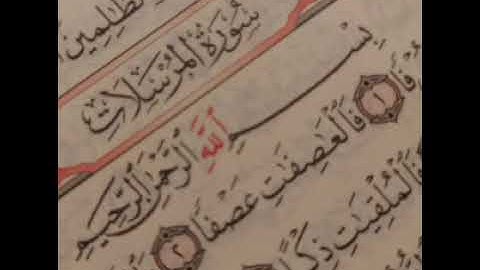 ٱلظَّٰلِمِينَ
سُورَةُ الْمُرْسَلَاتِ
بِسْمِ ٱللَّهِ ٱلرَّحْمَٰنِ ٱلرَّحِيمِ
فًا ١ فَٱلْعَٰصِفَٰتِ عَصْفًا ٢
فَٱلْمُلْقِيَٰتِ ذِكْرًا